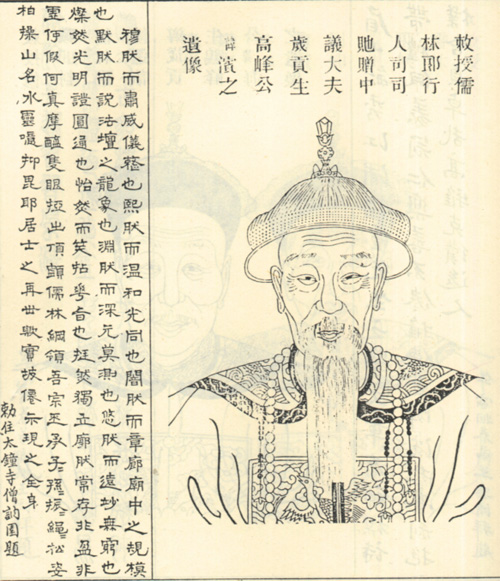 敕授儒
林郎行
人司司
貤贈中
議大夫
歲貢生
高峰公
諱濱之
遺像
穆肰而肅威儀也熙肰而温和光同也闇肰而章廊廟中之規模
也默肰而說法壇之龍象也淵肰而深元莫測也悠肰而遠妙無窮也
燦然光明證圓通也怡然而笑拈華旨也挺然獨立廓肰常存非盈非
何假何真摩醯隻眼出頂儒林綱領吾宗承子孫繩松姿
柏操山名水靈噫抑毘耶居士之再世歟實坡僊示現之全身
勅住太鐘寺僧訥園題